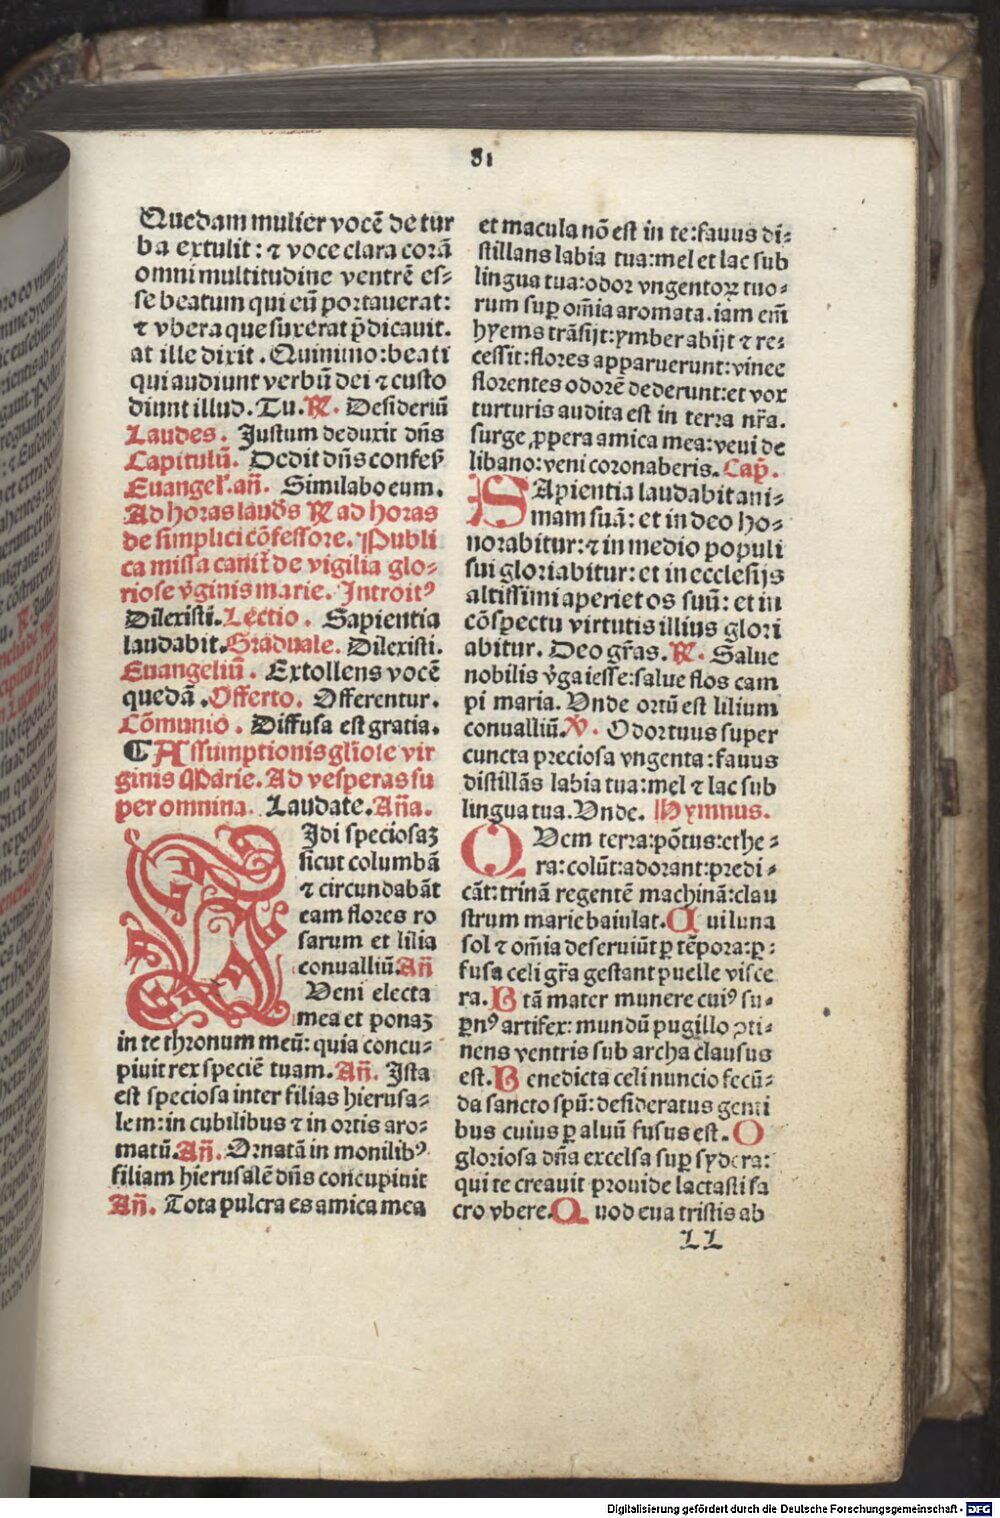 81
Quedam mulier vocē de tur
ba extulit: ⁊ voce clara corā
omni multitudine ventrē es⸗
se beatum qui eū portauerat:
⁊ vbera que suxerat p̄dicauit.
at ille dixit. Quinimo: beati
qui audiunt verbū dei ⁊ custo
diunt illud. Tu. ℟. Desideriū
Laudes. Justum deduxit dn̄s
Capitulū. Dedit dn̄s confess
Euangel'. an̄. Similabo eum.
Ad horas laud̄s ℟ ad horas
de simplici cōfessore. Publi
ca missa canit̄ de vigilia glo⸗
riose v̄ginis marie. Introitꝰ
Dilexisti. Lectio. Sapientia
laudabit. Graduale. Dilexisti.
Euangeliū. Extollens vocē
quedā. Offerto. Offerentur.
Cōmunio. Diffusa est gratia.
¶ Assumptionis gl'iose vir
ginis Marie. Ad vesperas su
per omnina. Laudate. An̄a.
VIdi speciosaꝫ
sicut columbā
⁊ circundabāt
eam flores ro
sarum et lilia
conualliū. An̄
Veni electa
mea et ponaꝫ
in te thronum meū: quia concu⸗
piuit rex speciē tuam. An̄. Ista
est speciosa inter filias hierusa⸗
lem: in cubilibus ⁊ in ortis aro⸗
matū. An̄. Ornatā in monilibꝰ
filiam hierusalē dn̄s concupiuit
An̄. Tota pulcra es amica mea
et macula nō est in te: fauus di⸗
stillans labia tua: mel et lac sub
lingua tua: odor vngentoꝝ tuo⸗
rum suꝑ om̄ia aromata. iam em̄
hyems trāsijt: ymber abijt ⁊ re⸗
cessit: flores apparuerunt: vinee
florentes odorē dederunt: et vox
turturis audita est in terra nr̄a.
surge ꝓpera amica mea: veni de
libano: veni coronaberis. Cap̄.
SApientia laudabit ani⸗
mam suā: et in deo ho⸗
norabitur: ⁊ in medio populi
sui gloriabitur: et in ecclesijs
altissimi aperiet os suū: et in
cōspectu virtutis illius glori
abitur. Deo gr̄as. ℟. Salue
nobilis v̄ga iesse: salue flos cam
pi maria. Vnde ortū est lilium
conualliū. ℣. Odor tuus super
cuncta preciosa vngenta: fauus
distillās labia tua: mel ⁊ lac sub
lingua tua. Vnde. Hymnus.
QVem terra: pōtus: ethe⸗
ra: colūt: adorant: predi⸗
cāt: trinā regentē machinā: clau
strum marie baiulat. Cui luna
sol ⁊ om̄ia deseruiūt ꝑ tēpora: ꝑ⸗
fusa celi gr̄a gestant puelle visce
ra. Btā mater munere cuiꝰ su⸗
ꝑnꝰ artifex: mundū pugillo ꝯti⸗
nens ventris sub archa clausus
est. Benedicta celi nuncio fecū⸗
da sancto spū: desideratus genti
bus cuius ꝑ aluū fusus est. O
gloriosa dn̄a excelsa suꝑ sydera:
qui te creauit prouide lactasti sa
cro vbere. Quod eua tristis ab
LL
Digitalisierung gefördert durch die Deutsche Forschungsgemeinschaft - DFG